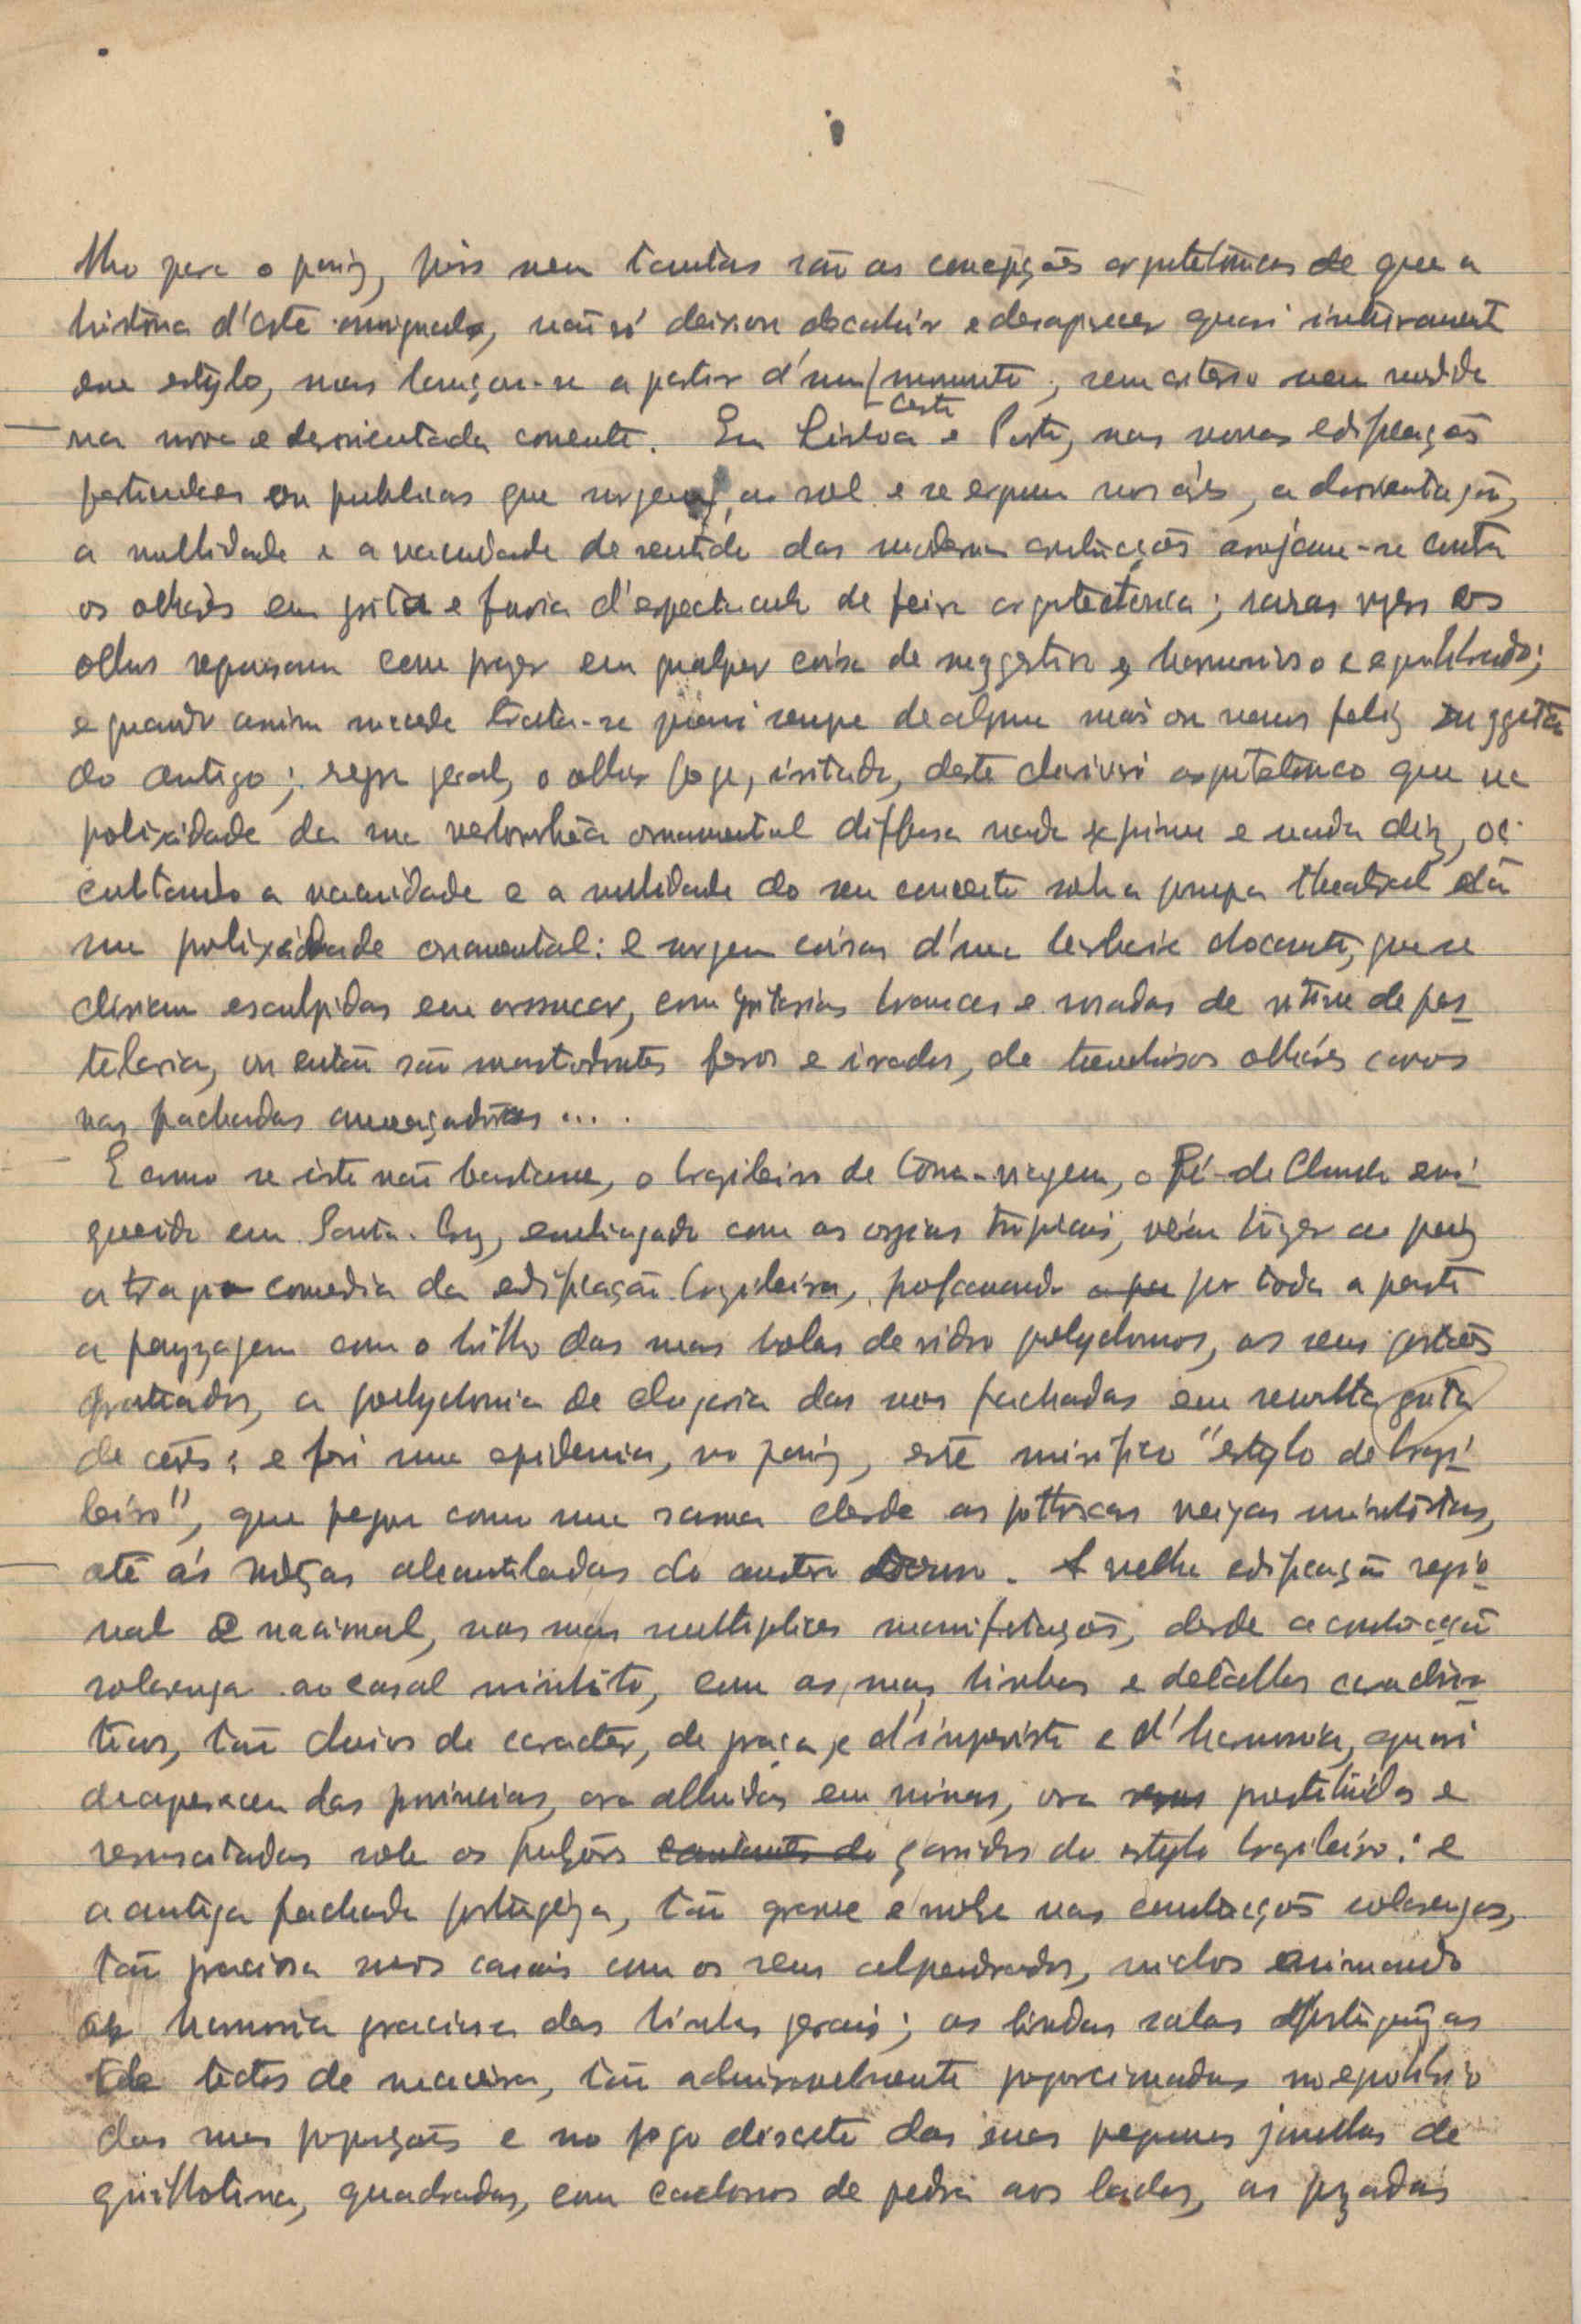 lho para o paiz, pois nem tantas são as concepções arquitetónicas de que a
história d'arte , não só deixou decahir e desaparecer quasi inteiramente
esse estylo, mas lançou-se a partir d'um certo momento, sem criterio nem medida
na nova e desorientada corrente. Em Lisboa e Porto, nas novas edificações
particulares ou publicas que surgem ao sol e se erguem nos áres, a desorientação,
a nullidade e a vacuidade de sentido das modernas construcções arrojam-se contra
os olhares em grita e furia d'espectaculo de feira arquitectonica; raras vezes os
olhos repousam com prazer em qualquer coisa de suggestivo e harmonioso e equilibrado;
e quando assim sucede trata-se quasi sempre de alguma mais ou menos feliz suggestão
do antigo; regra geral, o olhar foge, irritado, deste arquitetonico que na
polixidade da sua verborrhêa ornamental diffusa nada exprime e nada diz, oc-
cultando a vacuidade e a nullidade do seu conceito sob a pompa theatral da
sua polixidade ornamental: e surgem coisas d'uma docente, que se
diriam esculpidas em assucar, com brancas e rosadas de vitrine de pas-
telaria, ou então são mastodontes feros e irados, de tenebrosos olhares cavos
nas fachadas ameaçadoras ....
E como se isto não bastasse, o brazileiro de torna-viagem, o Zé-de Chumbo enri-
quecido em Santa-Cruz, embriagado com as orgias tropicais, vem trazer ao paiz
a tragi-comedia da edificação brazileira, profanando por toda a parte
a payzagem com o brilho das suas bolas de vidro polychromos, os seus portões
prateados, a polychromia de das suas fachadas em revolta grita
de côres: e foi uma epidemia, no paiz, este mirifico "estylo de brazi-
leiro", que pegou como uma sarna desde as veigas minhotas,
até ás alcantiladas do austero Douro. A velha edificação regio-
nal e nacional, nas suas multiplices manifestações, desde a construcção
solarenga ao casal minhoto, com as suas linhas e detalhes caracteris-
ticos, tão cheios de caracter, de graça, e d'imprevisto e d'harmonia, quasi
desaparecem das provincias, ora alluidas em ruinas, ora prostituidas e
ressuscitadas sob os garridos do estylo brazileiro: e
a antiga fachada portugueza, tão grave e nobre nas construcções solarengas,
tão graciosa nos casais com os seus alpendrados, nichos animando
a harmonia graciosa das linhas gerais; as lindas salas portuguezas
de tectos de maceira, tão admiravelmente proporcionadas no equilibrio
das suas proporções e no jogo discreto das suas pequenas janellas de
guilhotina, quadradas, com cachorros de pedra aos lados, as pezadas